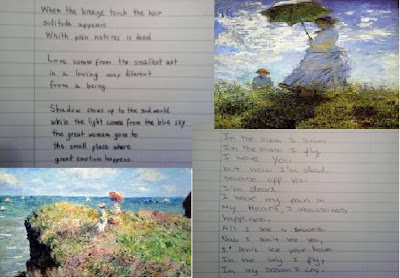 When the breeze touch the hair
solitude appears
Whith pain natures is dead.
Love comes from the smallest art
in a loving way diferent
from a being.
Shadow shows up to the sud world
while the light comes from the blue sky
the great woman goes to
the small place where
great emotion happens.
In the ocean I swim
In the ocean I fly
I love you
but now I'm dead.
because off you
I'm dead.
I hear my pain in
My Heart, I abandoned
happiness.
All I see is
Now I don't see you,
I don't see your love
In the sky I fly,
In my dream I cry.